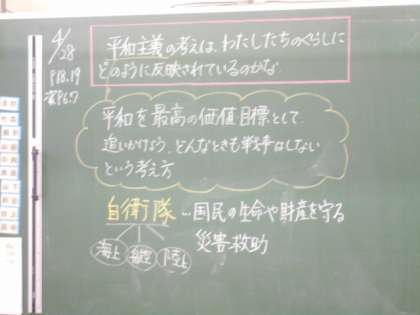 4/28
P18.19
資P6.7
平和主義の考えは、わたしたちのくらしに
どのように反映されているのかな。
平和を最高の価値目標として
追いかけよう。どんなときも戦争はしない
という考え方
自衛隊…国民の生命や財産を守る
災害救助
海上 航空 陸上